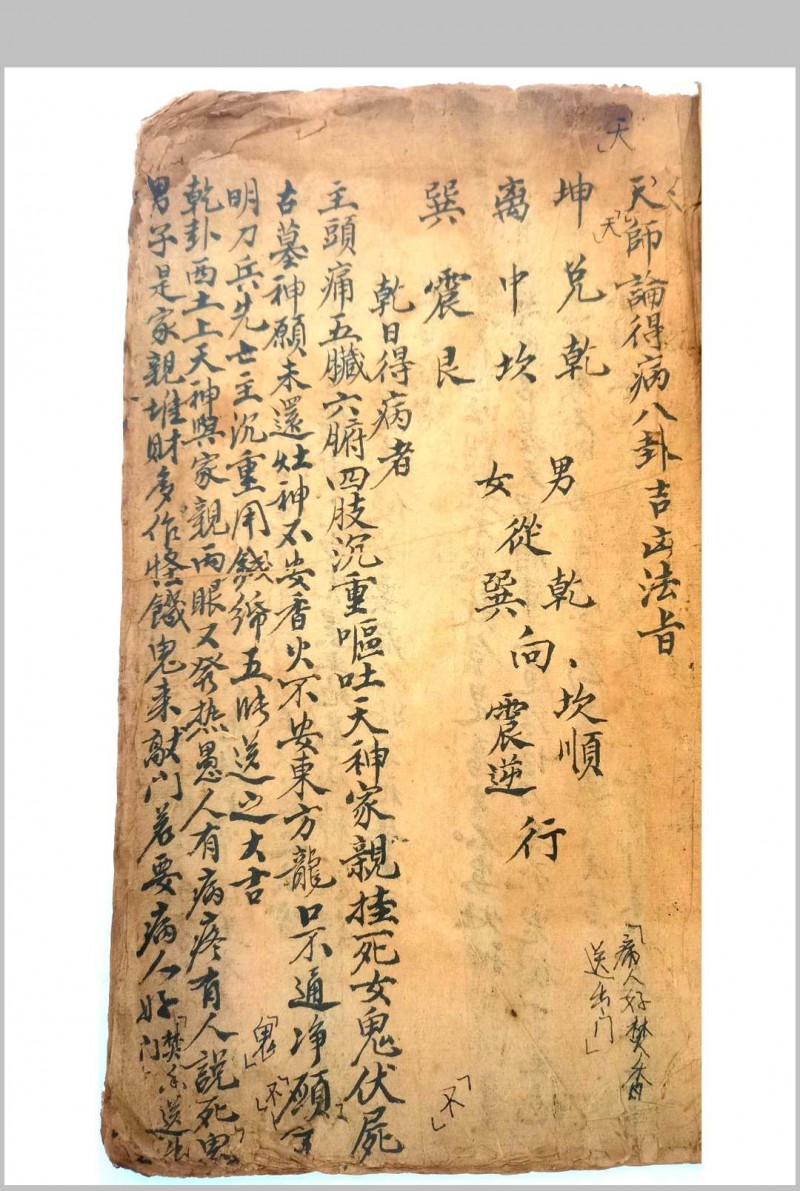 天師論得病八卦吉凶法旨
坤兌乾
離中坎
巽震艮
男乾坎順
女從巽向震逆行
乾日得病者
主頭痛五臟六腑四肢沉重嘔吐天神家親挂死女鬼伏屍
古墓神願未還灶神不安香火不安東方龍口不通净願
明刀兵先亡主沉重用錢綿五時送之大吉
乾卦西土上天神與家親兩眼又發热愚人有病疼有人說死鬼
男子是家親堆財多作怪餓鬼来敲门若要病人好
焚香送出门
天
天
病人好焚香
送出门
不
鬼
不